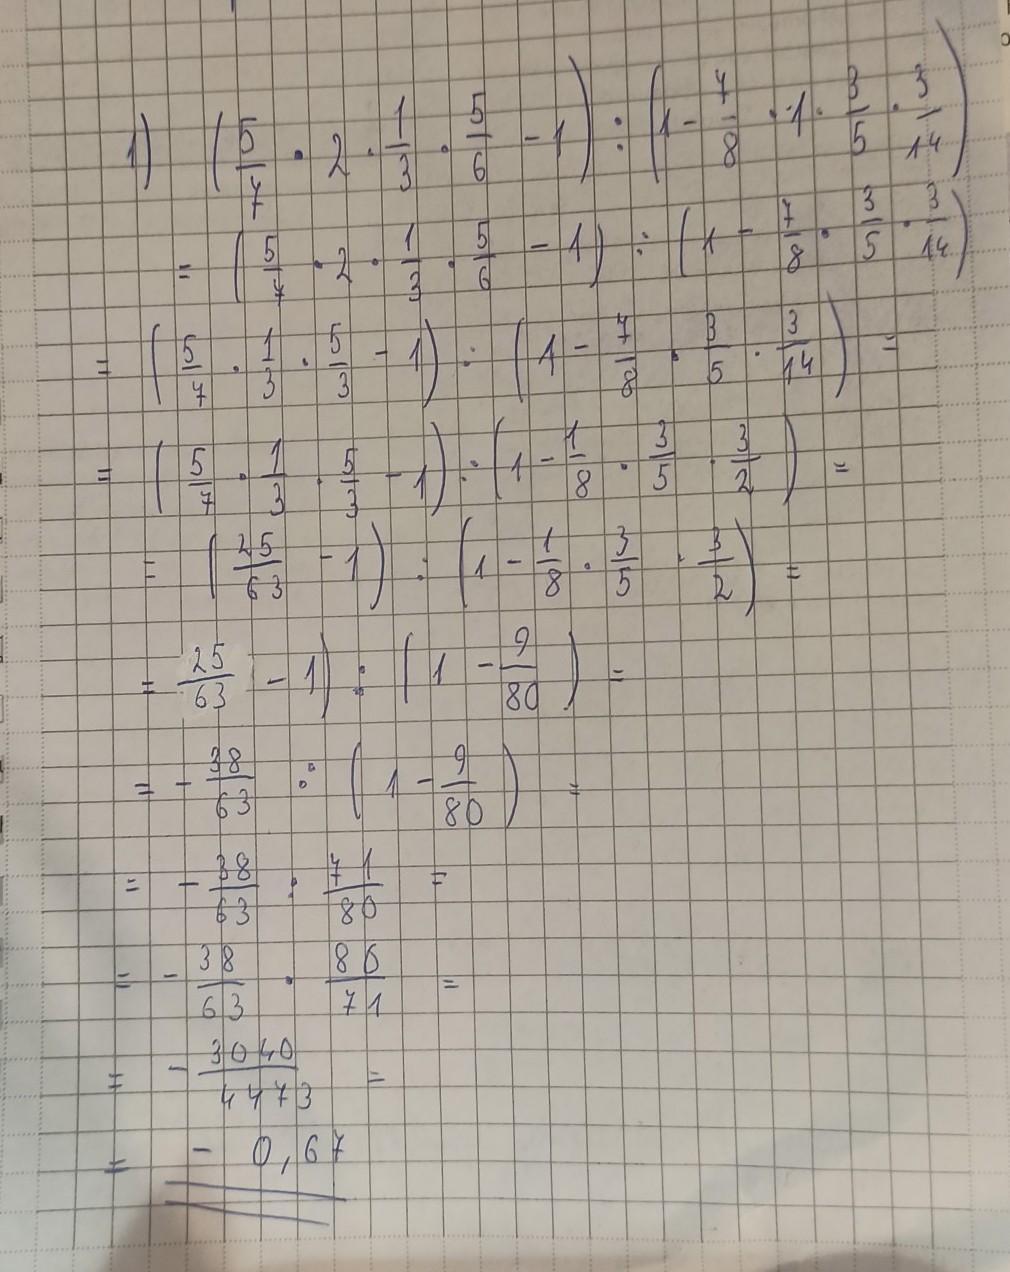 1) (5/7 · 2 · 1/3 · 5/6 - 1) : (1 - 7/8 · 1 · 3/5 · 3/14)
= (5/7 · 2 · 1/3 · 5/6 - 1) : (1 - 7/8 · 3/5 · 3/14)
= (5/7 · 1/3 · 5/3 - 1) : (1 - 7/8 · 3/5 · 3/14) =
= (5/7 · 1/3 · 5/3 - 1) : (1 - 1/8 · 3/5 · 3/2) =
= (25/63 - 1) : (1 - 1/8 · 3/5 · 3/2) =
= 25/63 - 1) : (1 - 9/80) =
= - 38/63 : (1 - 9/80) =
= - 38/63 : 71/80 =
= - 38/63 · 80/71 =
= - 3040/4473 =
= - 0,67